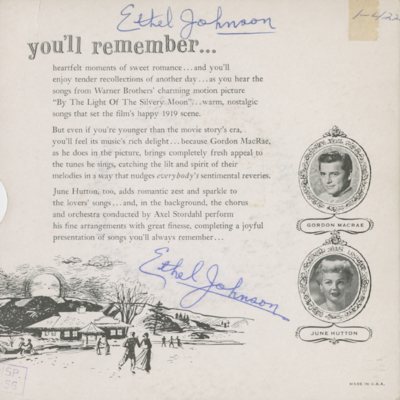 Ethel Johnson
1-422
you'll remember...
heartfelt moments of sweet romance...and you'll
enjoy tender recollections of another day...as you hear the
songs from Warner Brothers' charming motion picture
"By The Light Of The Silvery Moon"...warm, nostalgic
songs that set the film's happy 1919 scene.
But even if you're younger than the movie story's era,
you'll feel its music's rich delight...because Gordon MacRae,
as he does in the picture, brings completely fresh appeal to
the tunes he sings, catching the lilt and spirit of their
melodies in a way that nudges everybody's sentimental reveries.
June Hutton, too, adds romantic zest and sparkle to
the lovers' songs...and, in the background, the chorus
and orchestra conducted by Axel Stordahl perform
his fine arrangements with great finesse, completing a joyful
presentation of songs you'll always remember...
GORDON MACRAE
Ethel Johnson
JUNE HUTTON
SP
MADE IN U.S.A.